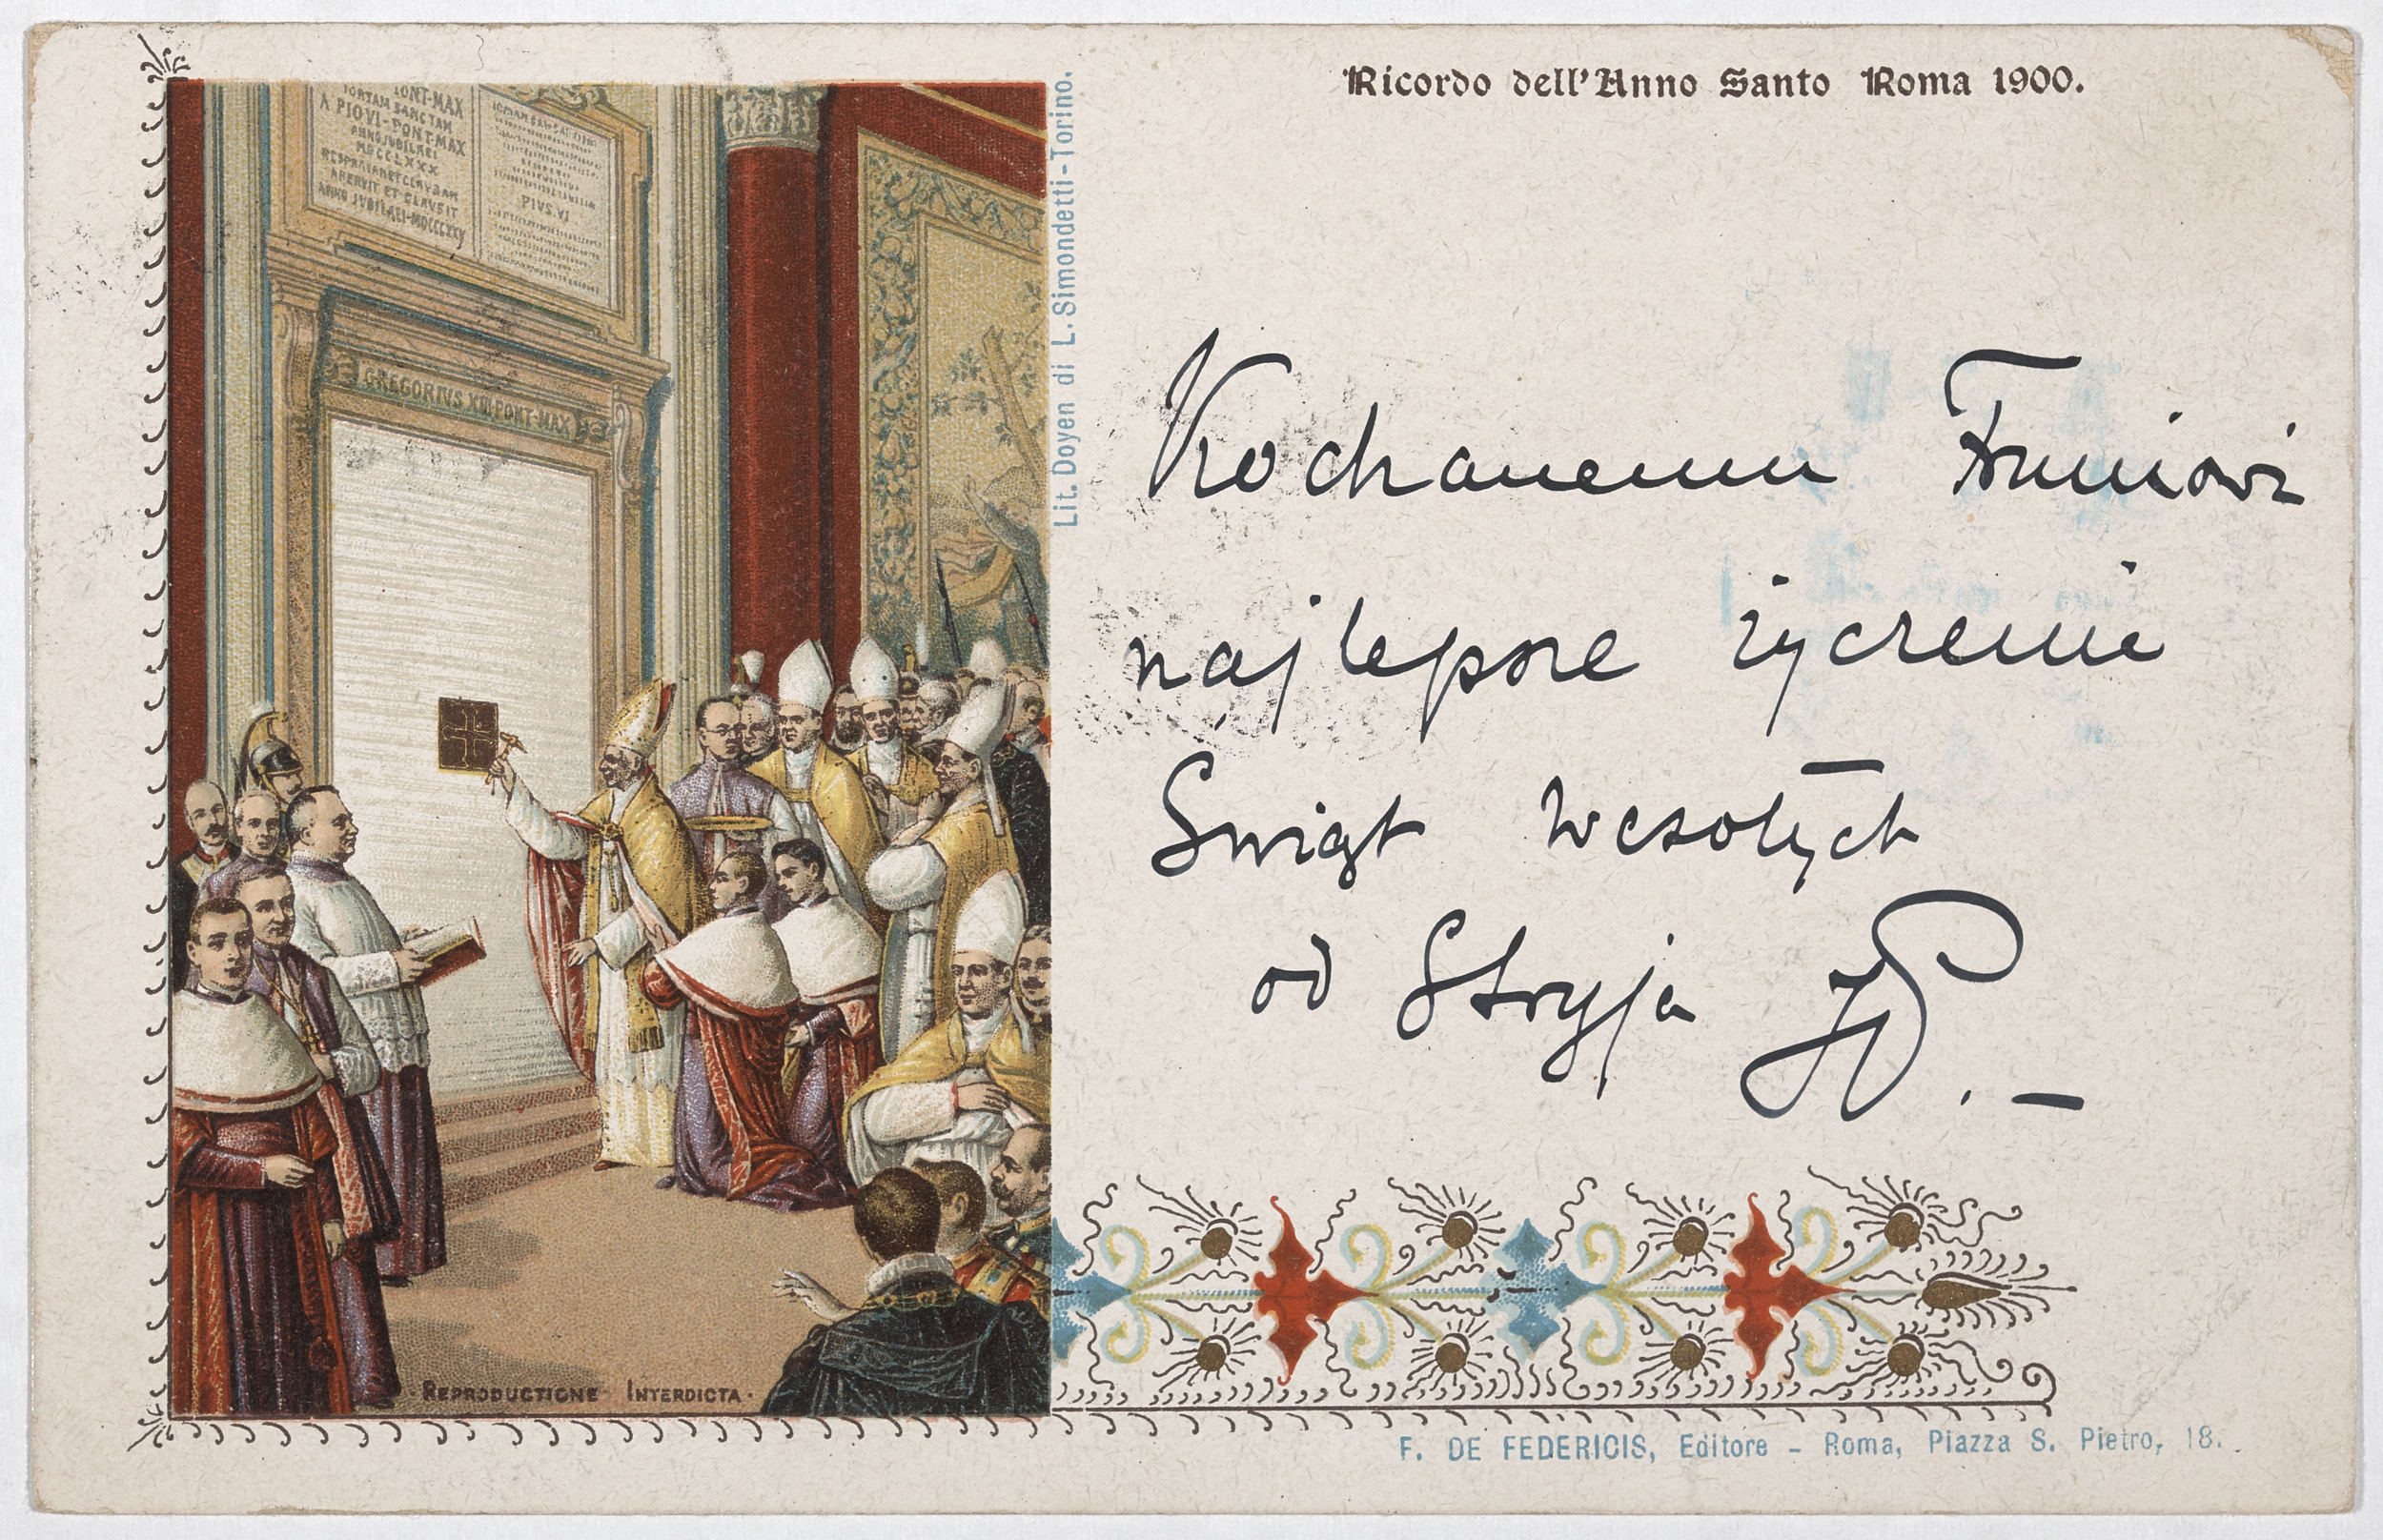 Ricordo dell'Anno Santo Roma 1900.
Lit. Doyen di L. Simondetti - Torino.
PONT-MAX
PORTAM SANCTAM
A PIO VI - PONT-MAX
ANNO JUBILAEI
MDCCLXXX
APERVIT ET CLAVSIT
ANNO JVBILAEI-MDCCCXXV
PIVS.VI
GREGORIVS XIII PONT-MAX
Kochanemu Funiowi
najlepsze życzenie
Świąt wesołych
od Stryja
· REPRODUCTIONE INTERDICTA ·
F. DE FEDERICIS, Editore - Roma, Piazza S. Pietro, 18.